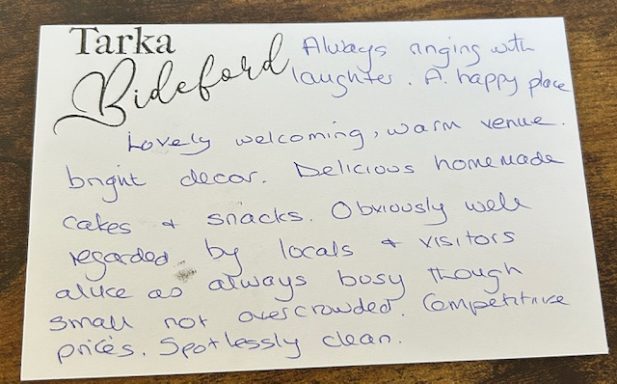 Tarka
Bideford
Always ringing with
laughter. A happy place
Lovely welcoming, warm venue.
bright decor. Delicious homemade
cakes & snacks. Obviously well
regarded by locals & visitors
alike as always busy though
small not overcrowded. Competitive
prices. Spotlessly clean.